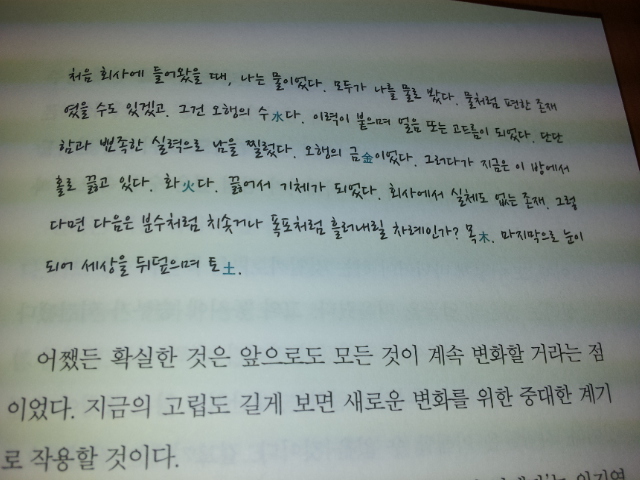 처음 회사에 들어왔을 때, 나는 물이었다. 모두가 나를 물로 봤다. 물처럼 편한 존재
였을 수도 있겠고. 그건 오행의 수水다. 이력이 붙으며 얼음 또는 고드름이 되었다. 단단
함과 뾰족한 실력으로 남을 찔렀다. 오행의 금金이었다. 그러다가 지금은 이 방에서
홀로 끓고 있다. 화火다. 끓어서 기체가 되었다. 회사에서 실체도 없는 존재. 그렇
다면 다음은 분수처럼 치솟거나 폭포처럼 흘러내릴 차례인가? 목木. 마지막으로 눈이
되어 세상을 뒤덮으며 토土.
어쨌든 확실한 것은 앞으로도 모든 것이 계속 변화할 거라는 점
이었다. 지금의 고립도 길게 보면 새로운 변화를 위한 중대한 계기
로 작용할 것이다.